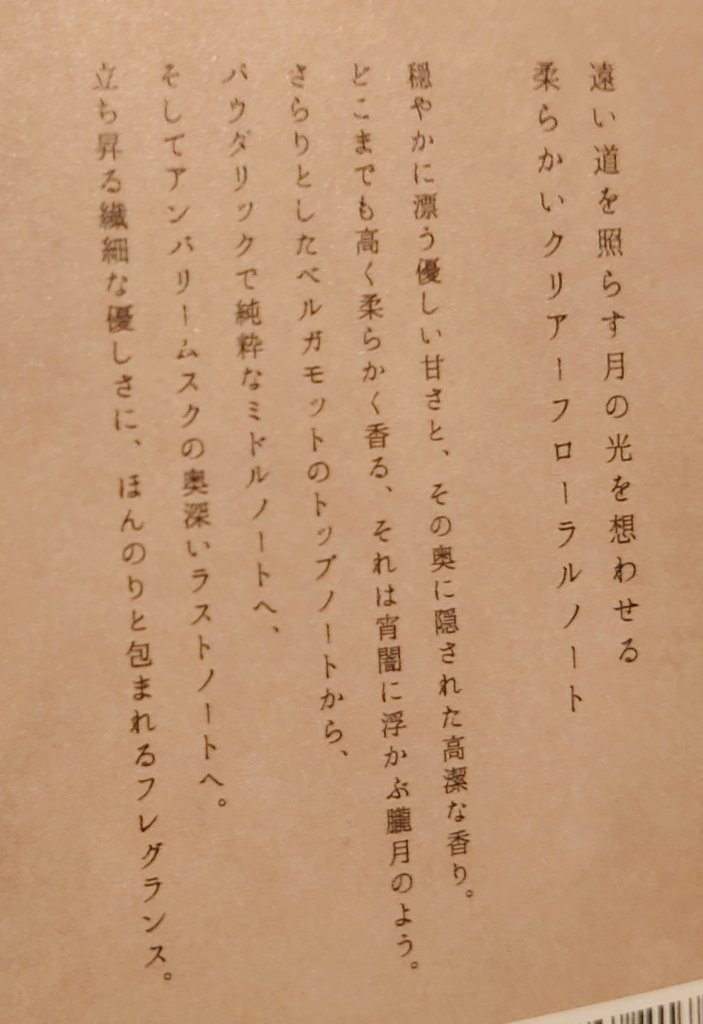 遠い道を照らす月の光を想わせる
柔らかいクリアーフローラルノート
穏やかに漂う優しい甘さと、その奥に隠された高潔な香り。
どこまでも高く柔らかく香る、それは宵闇に浮かぶ朧月のよう。
さらりとしたベルガモットのトップノートから、
パウダリックで純粋なミドルノートへ、
そしてアンバリームスクの奥深いラストノートへ。
立ち昇る繊細な優しさに、ほんのりと包まれるフレグランス。